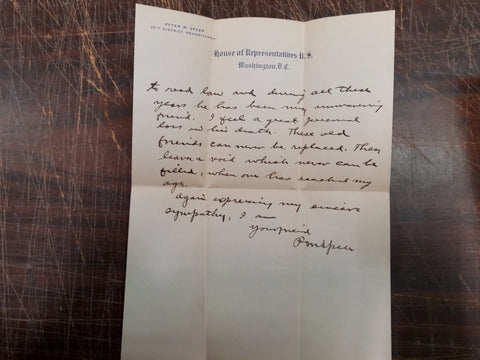 PETER M. SPEER
28TH DISTRICT PENNSYLVANIA
House of Representatives U.S.
Washington, D.C.
to read law and during all these
years he has been my unwavering
friend. I feel a great personal
loss in his death. These old
friends can never be replaced. They
leave a void which never can be
filled, when one has reached my
age.
Again expressing my sincere
sympathy, I am
Your friend
P M Speer